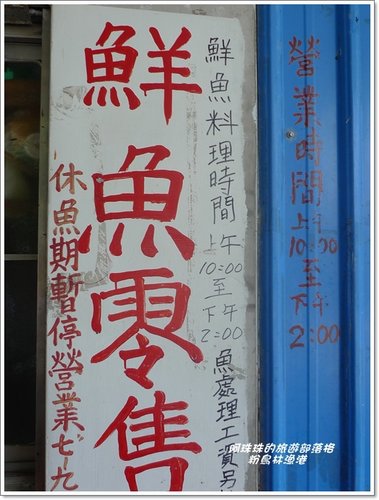 營業時間上午10:00至下午2:00
鮮魚料理時間上午10:00至下午2:00魚處理工資另
鮮魚零售
休魚期暫停營業七~九
珠珠的旅遊部落格
粉鳥林漁港